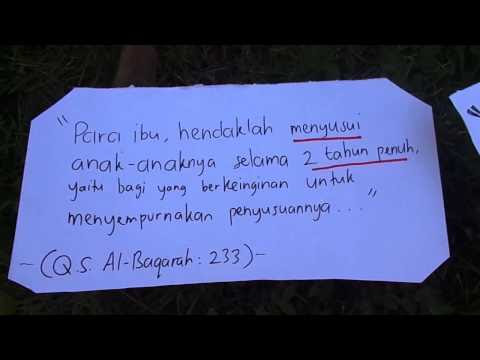 " Para ibu, hendaklah menyusui
anak-anaknya selama 2 tahun penuh,
yaitu bagi yang berkeinginan untuk
menyempurnakan penyusuannya ... "
- (Q.S. Al-Baqarah : 233) -